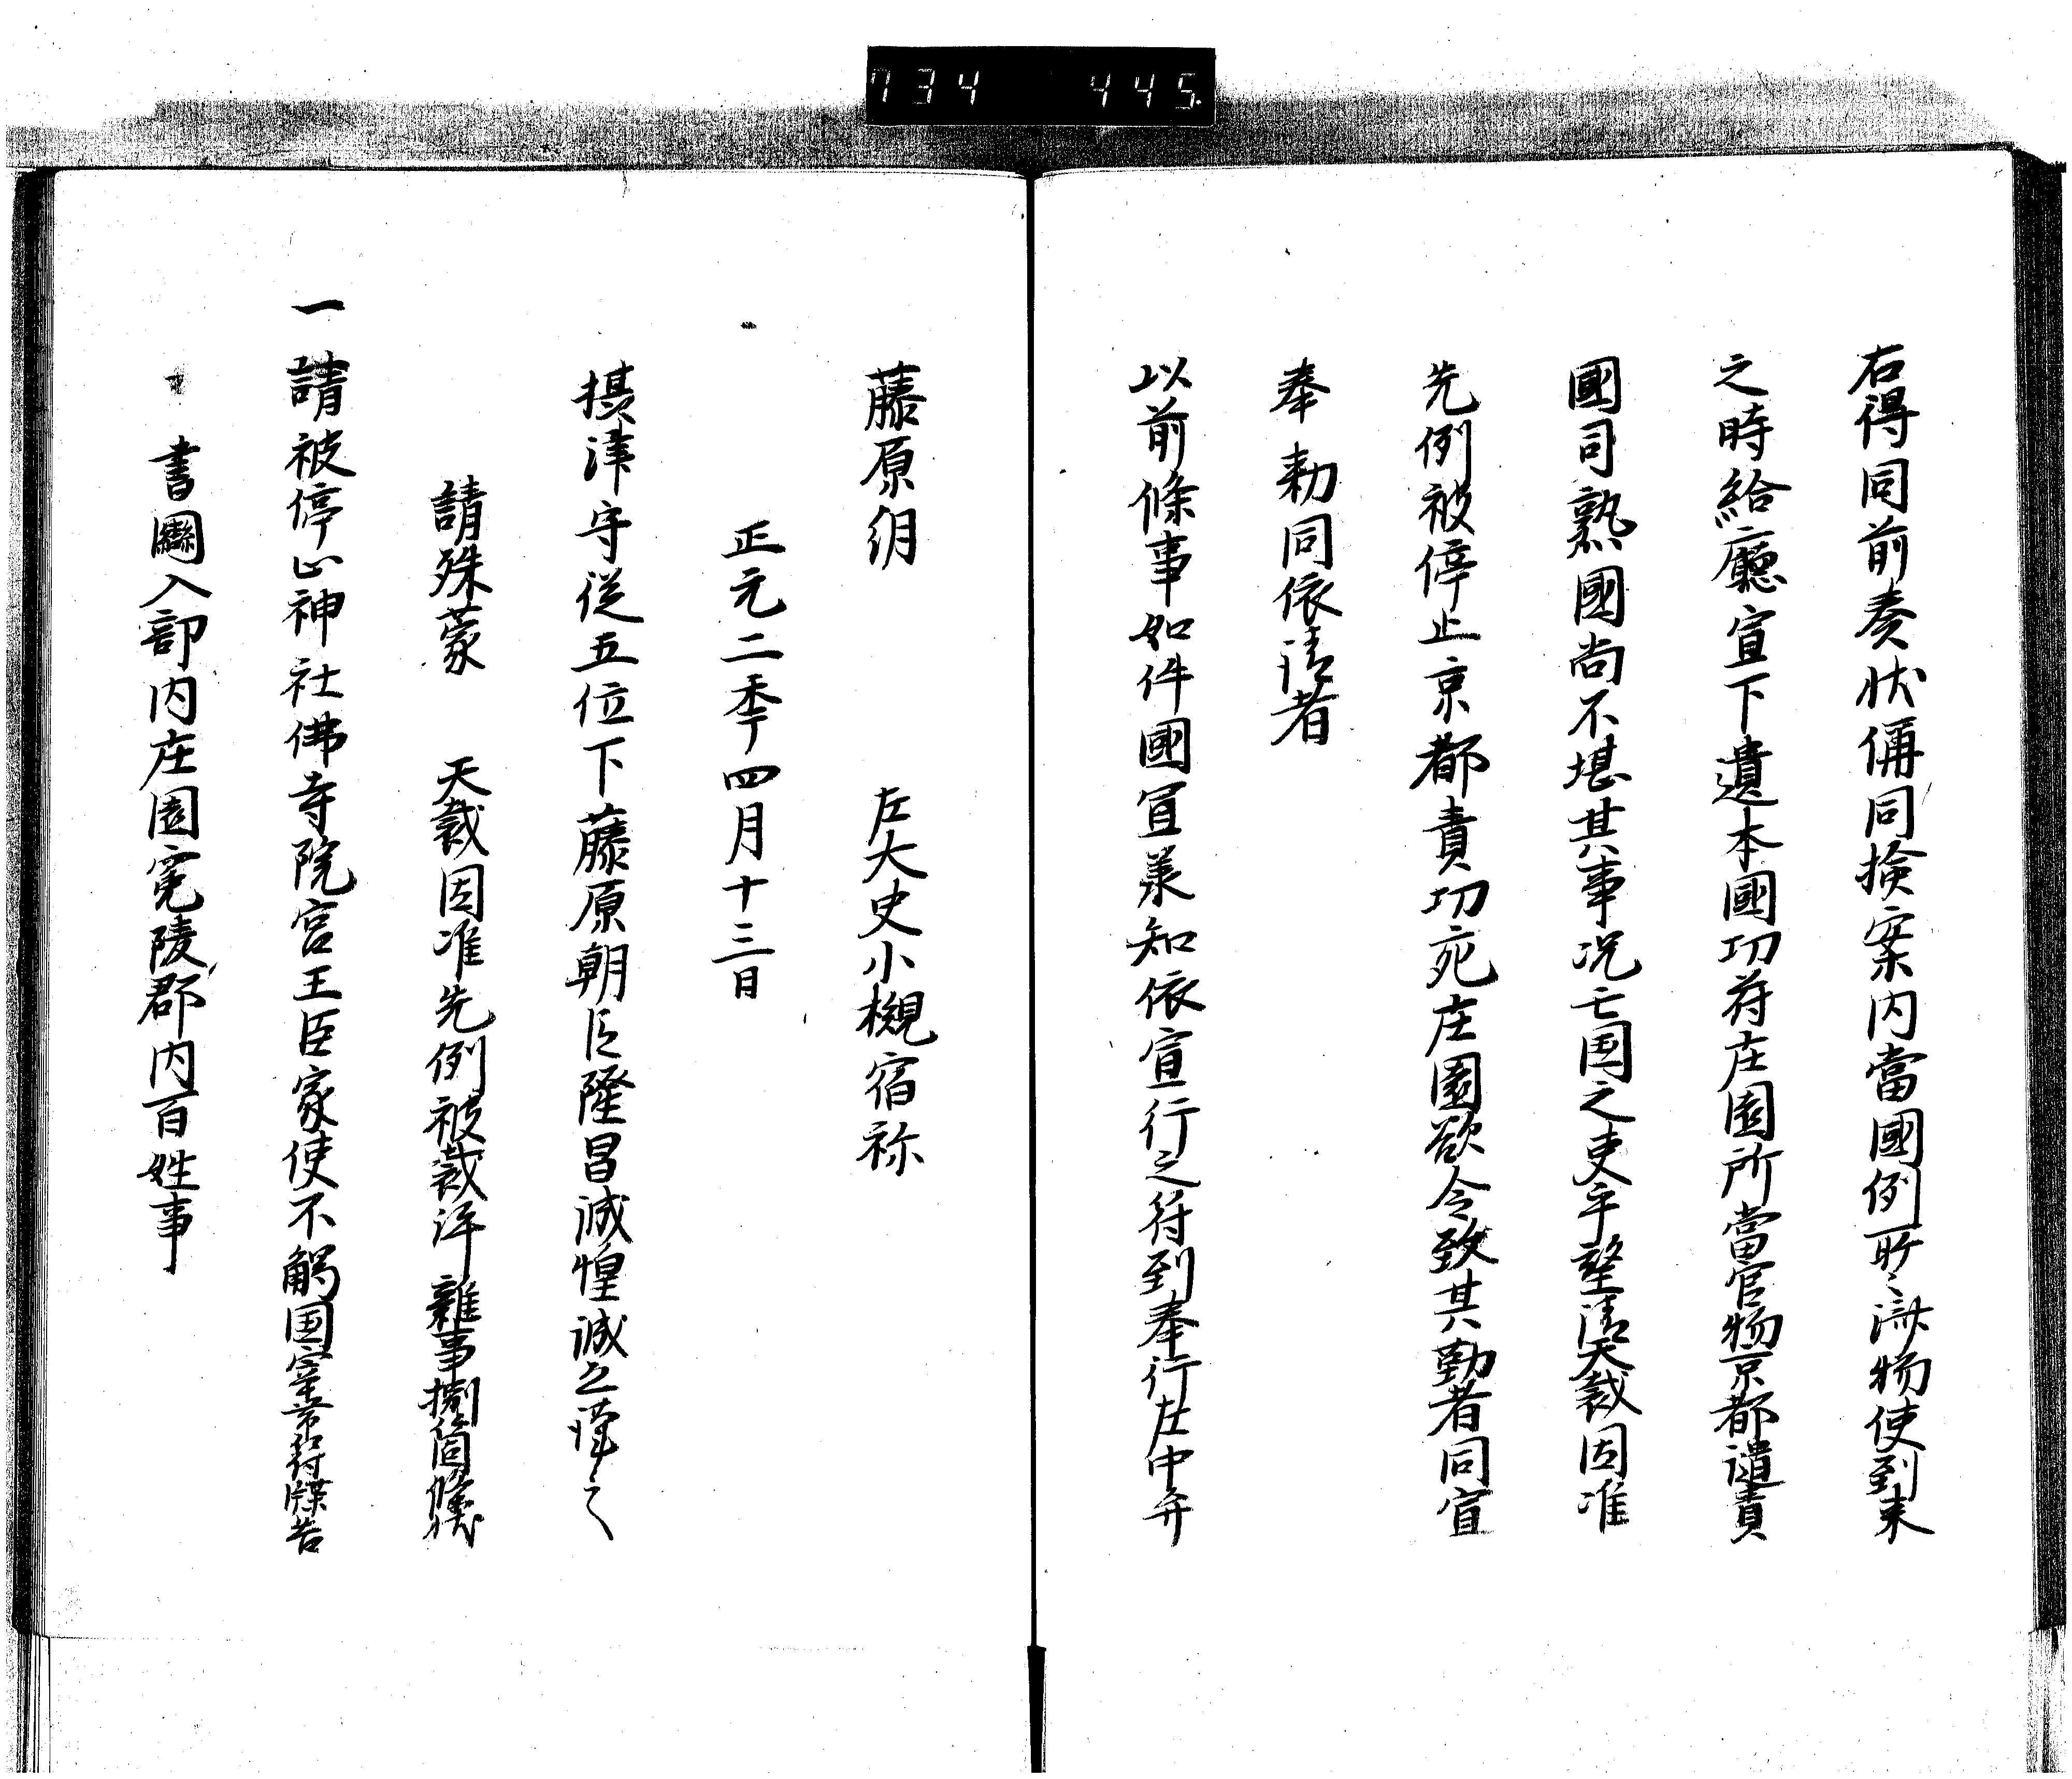 734 445
右得同前奏状偁同撿案内當國例所〻済物使到来
之時給廳宣下遺本國切符庄園所當官物京都譴責
國司熟國尚不堪其事况亡国之吏乎望請天裁因准
先例被停止京都責切宛庄園欲令致其勤者同宣
奉勅同依請者
以前條事如件國宜承知依宣行之符到奉行左中弁
藤原朝 左大史小槻宿祢
正元二季四月十三日
摂津守従五位下藤原朝臣隆昌誠惶誠之謹〻
請殊蒙 天裁因准先例被裁許雜事捌箇條
一請被停止神社佛寺院宮王臣家使不觸国宰帯符牒告
書圝入部内庄園寃陵郡内百姓事